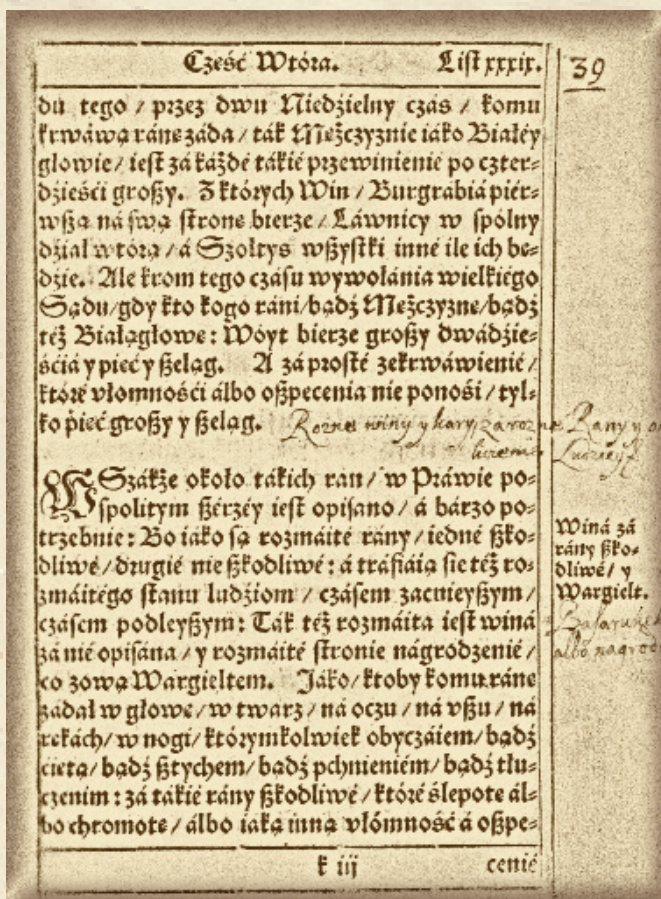 Cześć Wtóra. List xxxix. 39
du tego / przez dwu Niedźielny czás / komu
krwáwą ránę záda / ták Mężczyznie iáko Białéy
głowie / iest zá káżdé tákié przewinienie po czter-
dźieśći groszy. Z których Win / Burgrabiá piér-
wszą ná swą stronę bierze / Láwnicy w spólny
dźiał wtórą / á Szołtys wszystki inné ile ich bę-
dźie. Ale krom tego czásu wywołánia wielkiégo
Sądu / gdy kto kogo ráni / bądź Mężczyznę / bądź
téż Białągłowę: Wóyt bierze groszy dwádźie-
śćiá y pięć y szeląg. A zá prosté zekrwáwienié /
któré vłomnośći álbo oszpecenia nie ponośi / tyl-
ko pięć groszy y szeląg.
Rozne winy y kary za rozne Rany y
WSzákże około tákich ran / w Práwie po-
spolitym szérzéy iest opisano / á bárzo po-
trzebnie: Bo iáko są rozmáité rány / iedné szko-
dliwé / drugié nie szkodliwé: á tráfiáią się téż ro-
zmáitégo stanu ludźiom / czásem zacnieyszym /
czásem podleyszym: Ták téż rozmáita iest winá
zá nié opisána / y rozmáité stronie nágrodzenié /
co zową Wargieltem. Jáko / ktoby komu ránę
zádał w głowę / w twarz / ná oczu / ná vszu / ná
rękách / w nogi / którymkolwiek obyczáiem / bądź
ciętą / bądź sztychem / bądź pchnieniém / bądź tłu-
czenim: zá tákié rány szkodliwé / któré ślepotę ál-
bo chromotę / álbo iáką inną vłómność á oszpe-
k iij cenié
Winá zá
rány szko-
dliwé / y
Wargielt.
albo nagrod